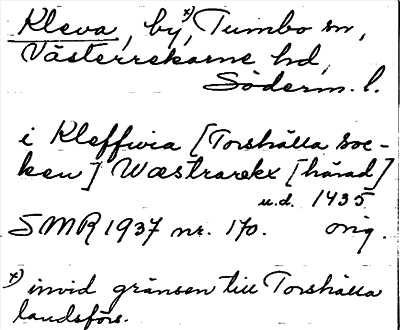 Kleva, by,x) Tumbo sn,
Västerrekarne hd,
Söderm. l.
i Kleffwia [Torshälla soc-
ken] Wæstrarekx [härad]
u.d. 1435
SMR 1937 nr. 170. orig.
x) invid gränsen till Torshälla
landsförs.